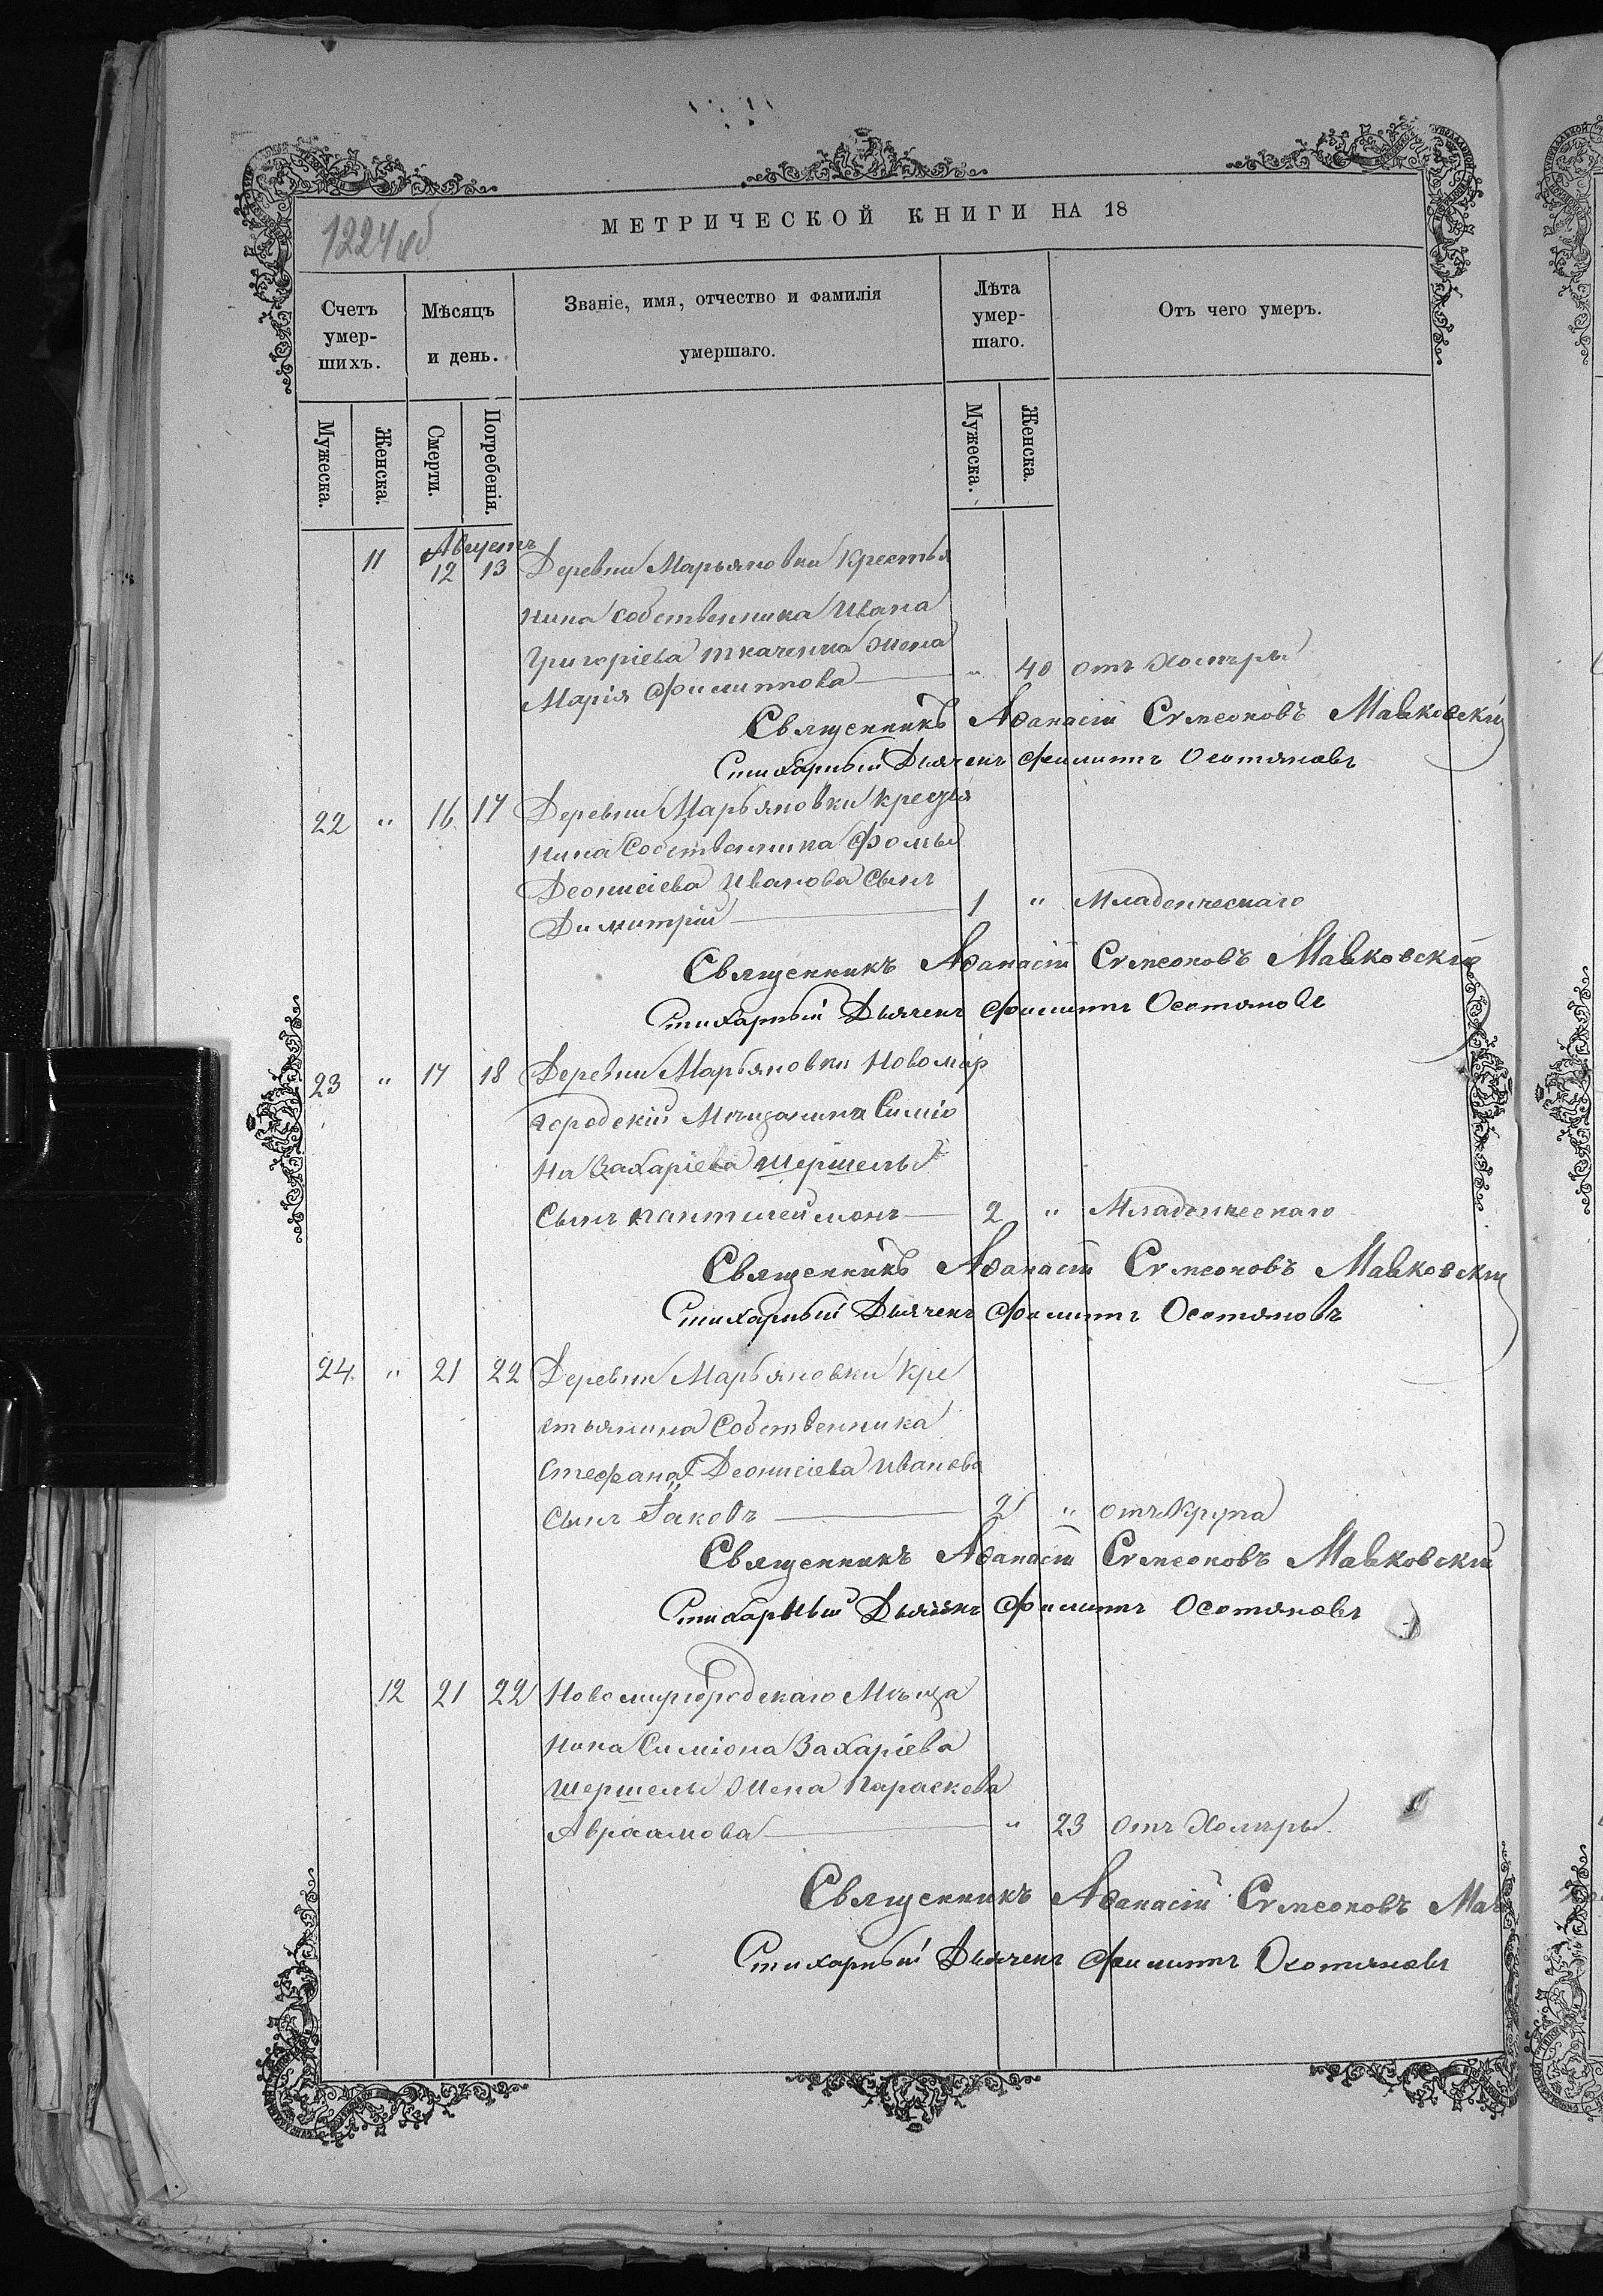 1224 об
МЕТРИЧЕСКОЙ КНИГИ НА 18
Счетъ умер-шихъ.
Мѣсяцъ и день.
Званіе, имя, отчество и фамилія умершаго.
Лѣта умер-шаго.
Отъ чего умеръ.
Мужеска.
Женска.
Смерти.
Погребенія.
Мужеска.
Женска.
Августъ
11 12 13 Деревни Марьяновки Крестья
нина собственника Ивана
Григоріева Ткаченка жена
Марія Филиппова " 40 отъ Холѣры
Священникъ Афанасій Симеоновъ Маьковскій
Стихарный Дьячекъ Филиппъ
22 " 16 17 Деревни Марьяновки Крестья
нина Собственника Фомы
Деонисіева Иванова сынъ
Димитрій 1 " Младенческаго
Священникъ Афанасій Симеоновъ Маьковскій
Стихарный Дьячекъ Филиппъ
23 " 17 18 Деревни Марьяновки Новомір
городскій Мѣщанина Симіо
на Захаріева Шершелы
Сынъ Пантилеймонъ 2 " Младенческаго
Священникъ Афанасій Симеоновъ Маьковскій
Стихарный Дьячекъ Филиппъ
24 " 21 22 Деревни Марьяновки Кре
стьянина Собственника
Стефана Деонисіева Иванова
сынъ Іаковъ 2 " отъ Крупа
Священникъ Афанасій Симеоновъ Маьковскій
Стихарный Дьячекъ Филиппъ
12 21 22 Новомиргородскаго Мѣща
нина Симіона Захаріева
Шершелы жена Параскева
Авраамова " 23 отъ Холѣры
Священникъ Афанасій Симеоновъ
Стихарный Дьячекъ Филиппъ